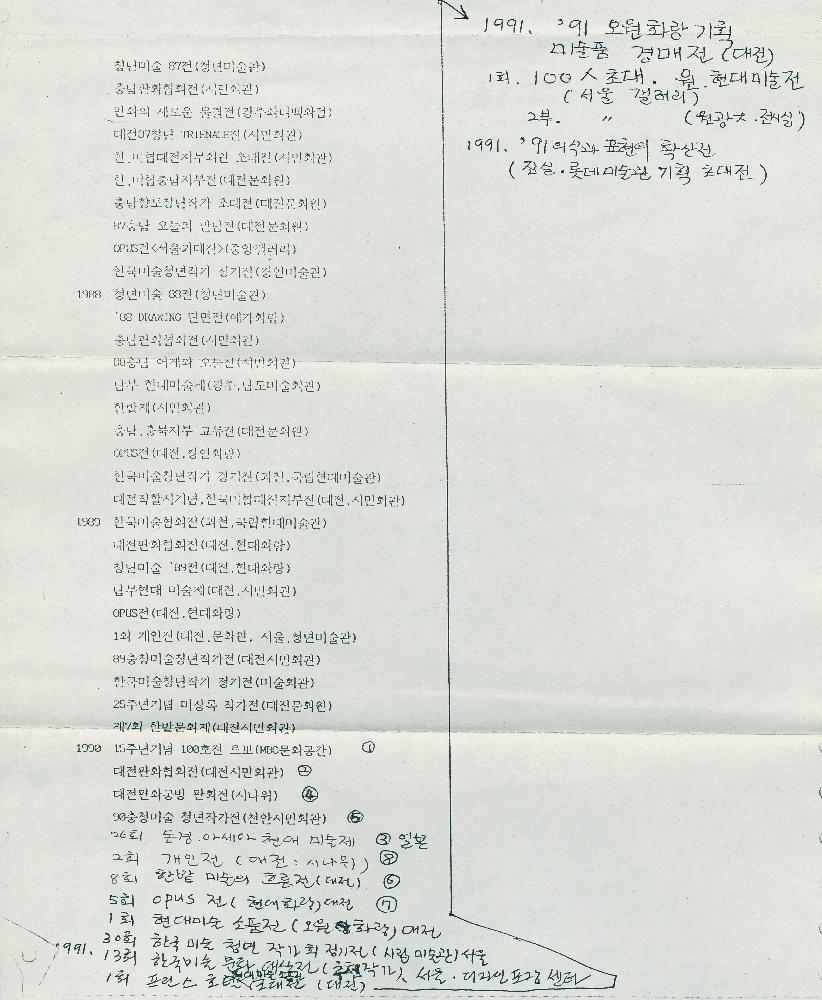 청년미술 87전(청년미술관)
충남판화협회전(시민회관)
판화의 새로운 물결전(광주화니백화점)
대전87청남 TRIENALE전(시민회관)
한.미협대전지부회원 초대전(시민회관)
한.미협충남지부전(대전문화원)
충남향토청년작가 초대전(대전문화원)
87충남 오늘의 만남전(대전문화원)
OPUS전<서울과대전>(중앙갤러리)
한국미술청년작가 정기전(경인미술관)
1988 청년미술 88전(청년미술관)
'88 DRAWING 단면전(에가화랑)
충남판화협회전(시민회관)
88충남 어제와 오늘전(시민회관)
남부 현대미술제(광주,남도미술회관)
한밭제(시민회관)
충남,충북지부 교류전(대전문화원)
OPUS전(대전,경인화랑)
한국미술청년작가 정기전(과천,국립현대미술관)
대전직할시기념,한국미협대전지부전(대전,시민회관)
1989 한국미술협회전(과천,국립현대미술관)
대전판화협회전(대전,현대화랑)
청년미술 '89전(대전,현대화랑)
남부현대 미술제(대전,시민회관)
OPUS전(대전,현대화랑)
1회 개인전(대전,문화원, 서울,청년미술관)
89충청미술청년작가전(대전시민회관)
한국미술청년작가 정기전(미술회관)
25주년기념 미상록 작가전(대전문화원)
제7회 한밭문화제(대전시민회관)
1990 15주년기념 100호전 르뽀(MBC문화공간) ①
대전판화협회전(대전시민회관) ②
대전판화공방 판화전(시나위) ④
90충청미술 청년작가전(천안시민회관) ⑤
26회 동경.아세아 현대 미술제 ③ 일본
2회 개인전 (대전: 시나위) ⑧
8회 한밭 미술의 흐름전(대전) ⑥
5회 opus 전(현대화랑)대전 ⑦
1회 현대미술 소품전(오원 화랑) 대전
'991. 30회 한국 미술 청년 작가회 정기전(시립 미술관)서울
13회 한국미술 문화 대상전(추천작가). 서울·디자인포장 센터
1회 프랑스 초대 (대전)
1991. '91 오원화랑 기획
미술품 경매전 (대전)
1회. 100人초대. 원.현대미술전
(서울 갤러리)
2부. " (원광大·전시실)
1991. '91의식과 표현의 확산전
(잠실·롯데미술관 기획 초대전)